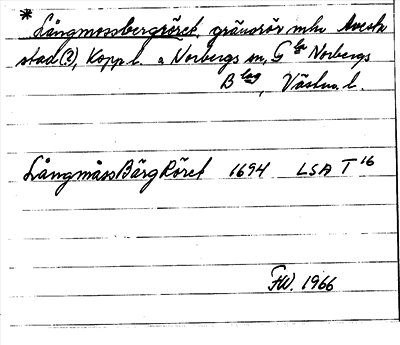 * Långmossbergröret, gränsrör mln Avesta
stad(?), Kopp. l. o Norbergs sn, G la Norbergs
Blag, Västm. l.
LångmåssBärgRöret 1694 LSA T 16
FW. 1966